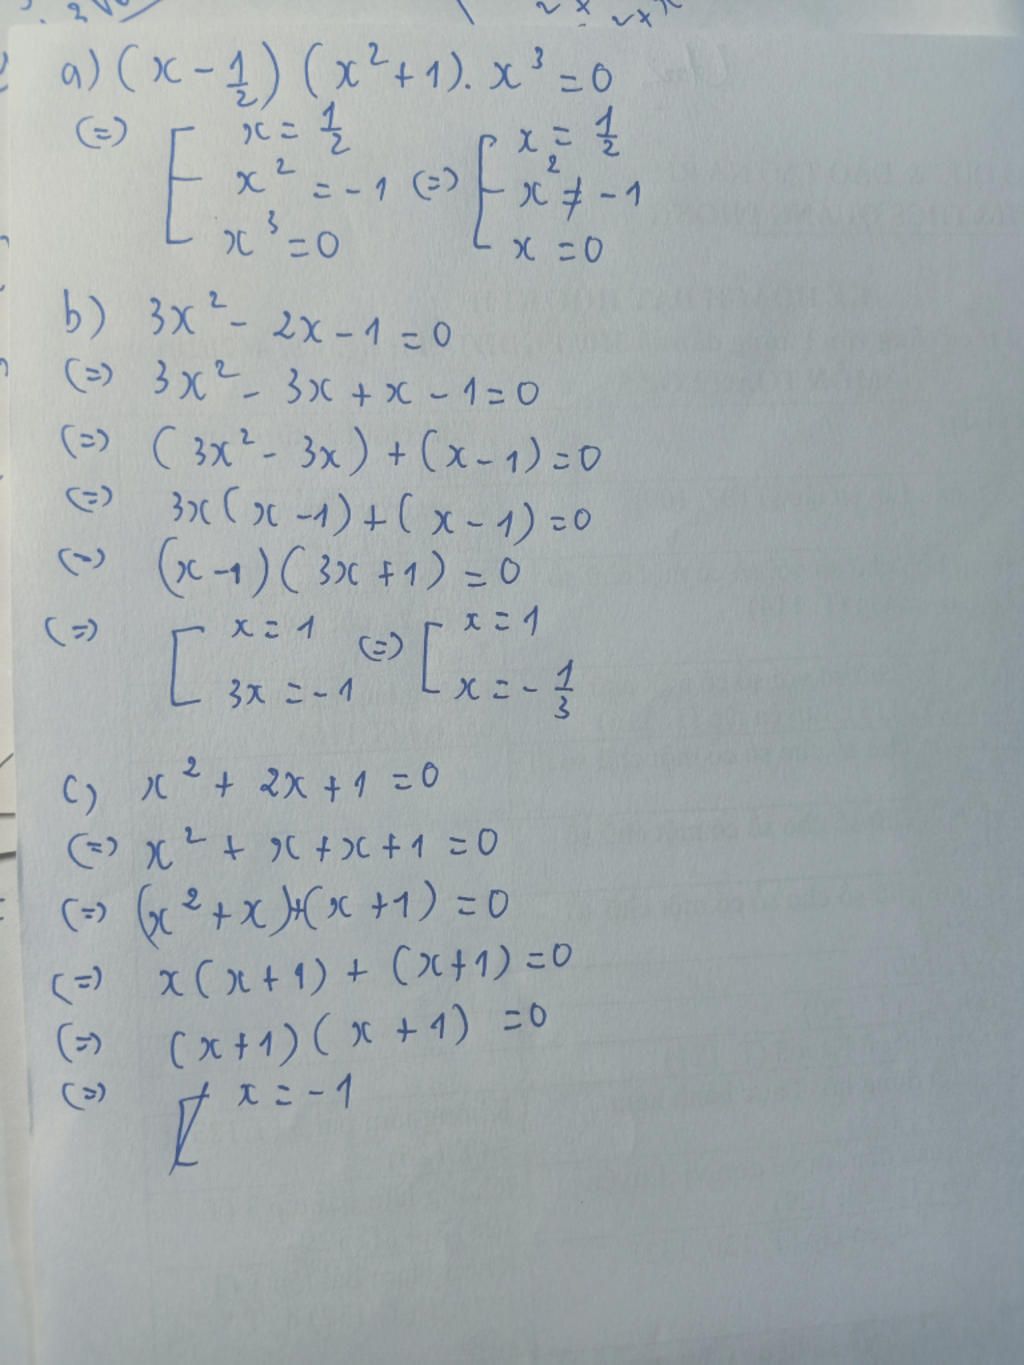 a) (x - 1/2) (x² + 1). x³ = 0
(=) [ x = 1/2
x² = -1 (=) [ x = 1/2
x² ≠ -1
x³ = 0 x = 0
b) 3x² - 2x - 1 = 0
(=) 3x² - 3x + x - 1 = 0
(=) (3x² - 3x) + (x - 1) = 0
(=) 3x(x - 1) + (x - 1) = 0
(=) (x - 1)(3x + 1) = 0
(=) [ x = 1 (=) [ x = 1
3x = -1 x = - 1/3
c) x² + 2x + 1 = 0
(=) x² + x + x + 1 = 0
(=) (x² + x) + (x + 1) = 0
(=) x(x + 1) + (x + 1) = 0
(=) (x + 1)(x + 1) = 0
(=) x = -1